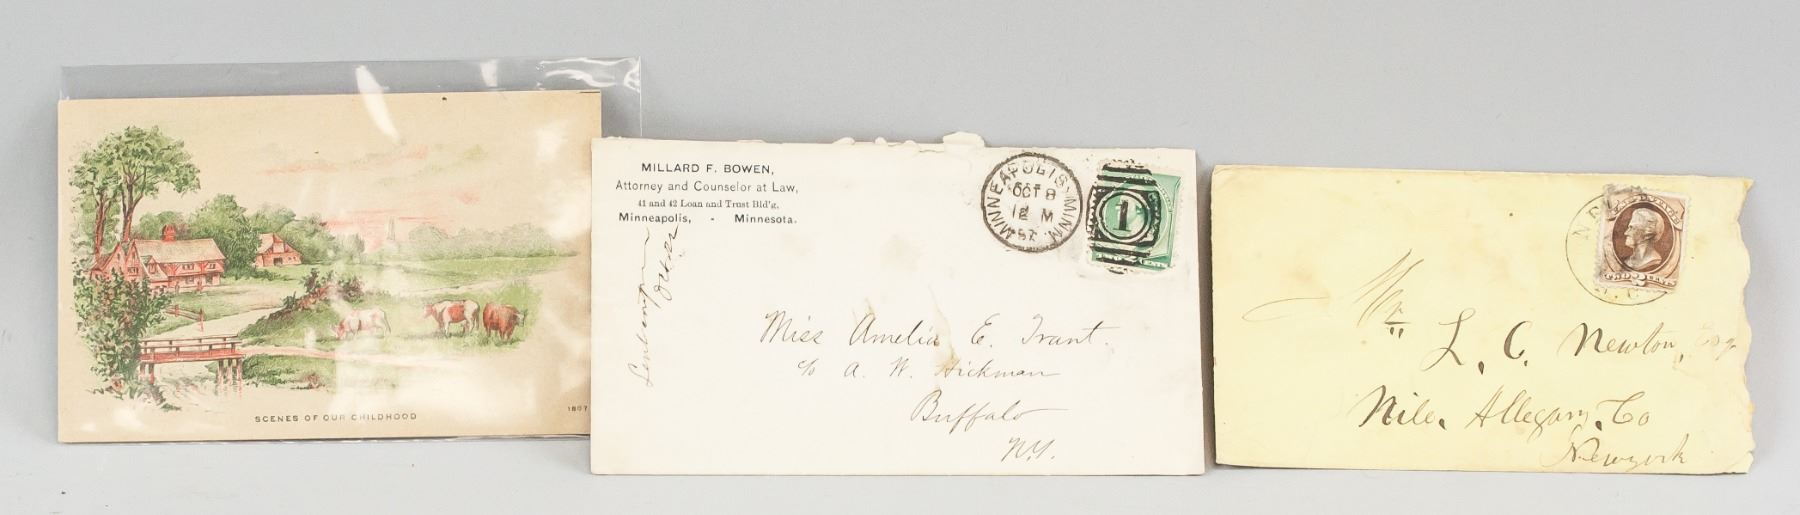 SCENES OF OUR CHILDHOOD
1807
MILLARD F. BOWEN,
Attorney and Counselor at Law,
41 and 42 Loan and Trust Bld'g,
Minneapolis, - Minnesota.
MINNEAPOLIS MINN.
OCT 8
12 M
1
CENTS
Miss Amelia E. Trant.
c/o A. W. Hickman
Buffalo
N.Y.
NEW
TWO CENTS
Mr L. C. Newton, Esq
Nile, Allegany, Co
Newyork